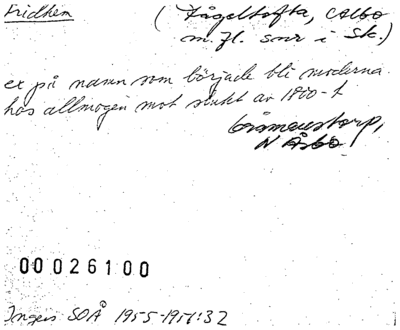 Fridhem (Fågeltofta, Albo
m.fl. snr i Sk.)
ex på namn som började bli moderna
hos allmogen mot slutet av 1800-t
N Åsbo
00026100
Ingers SOÅ 1955-1957:32